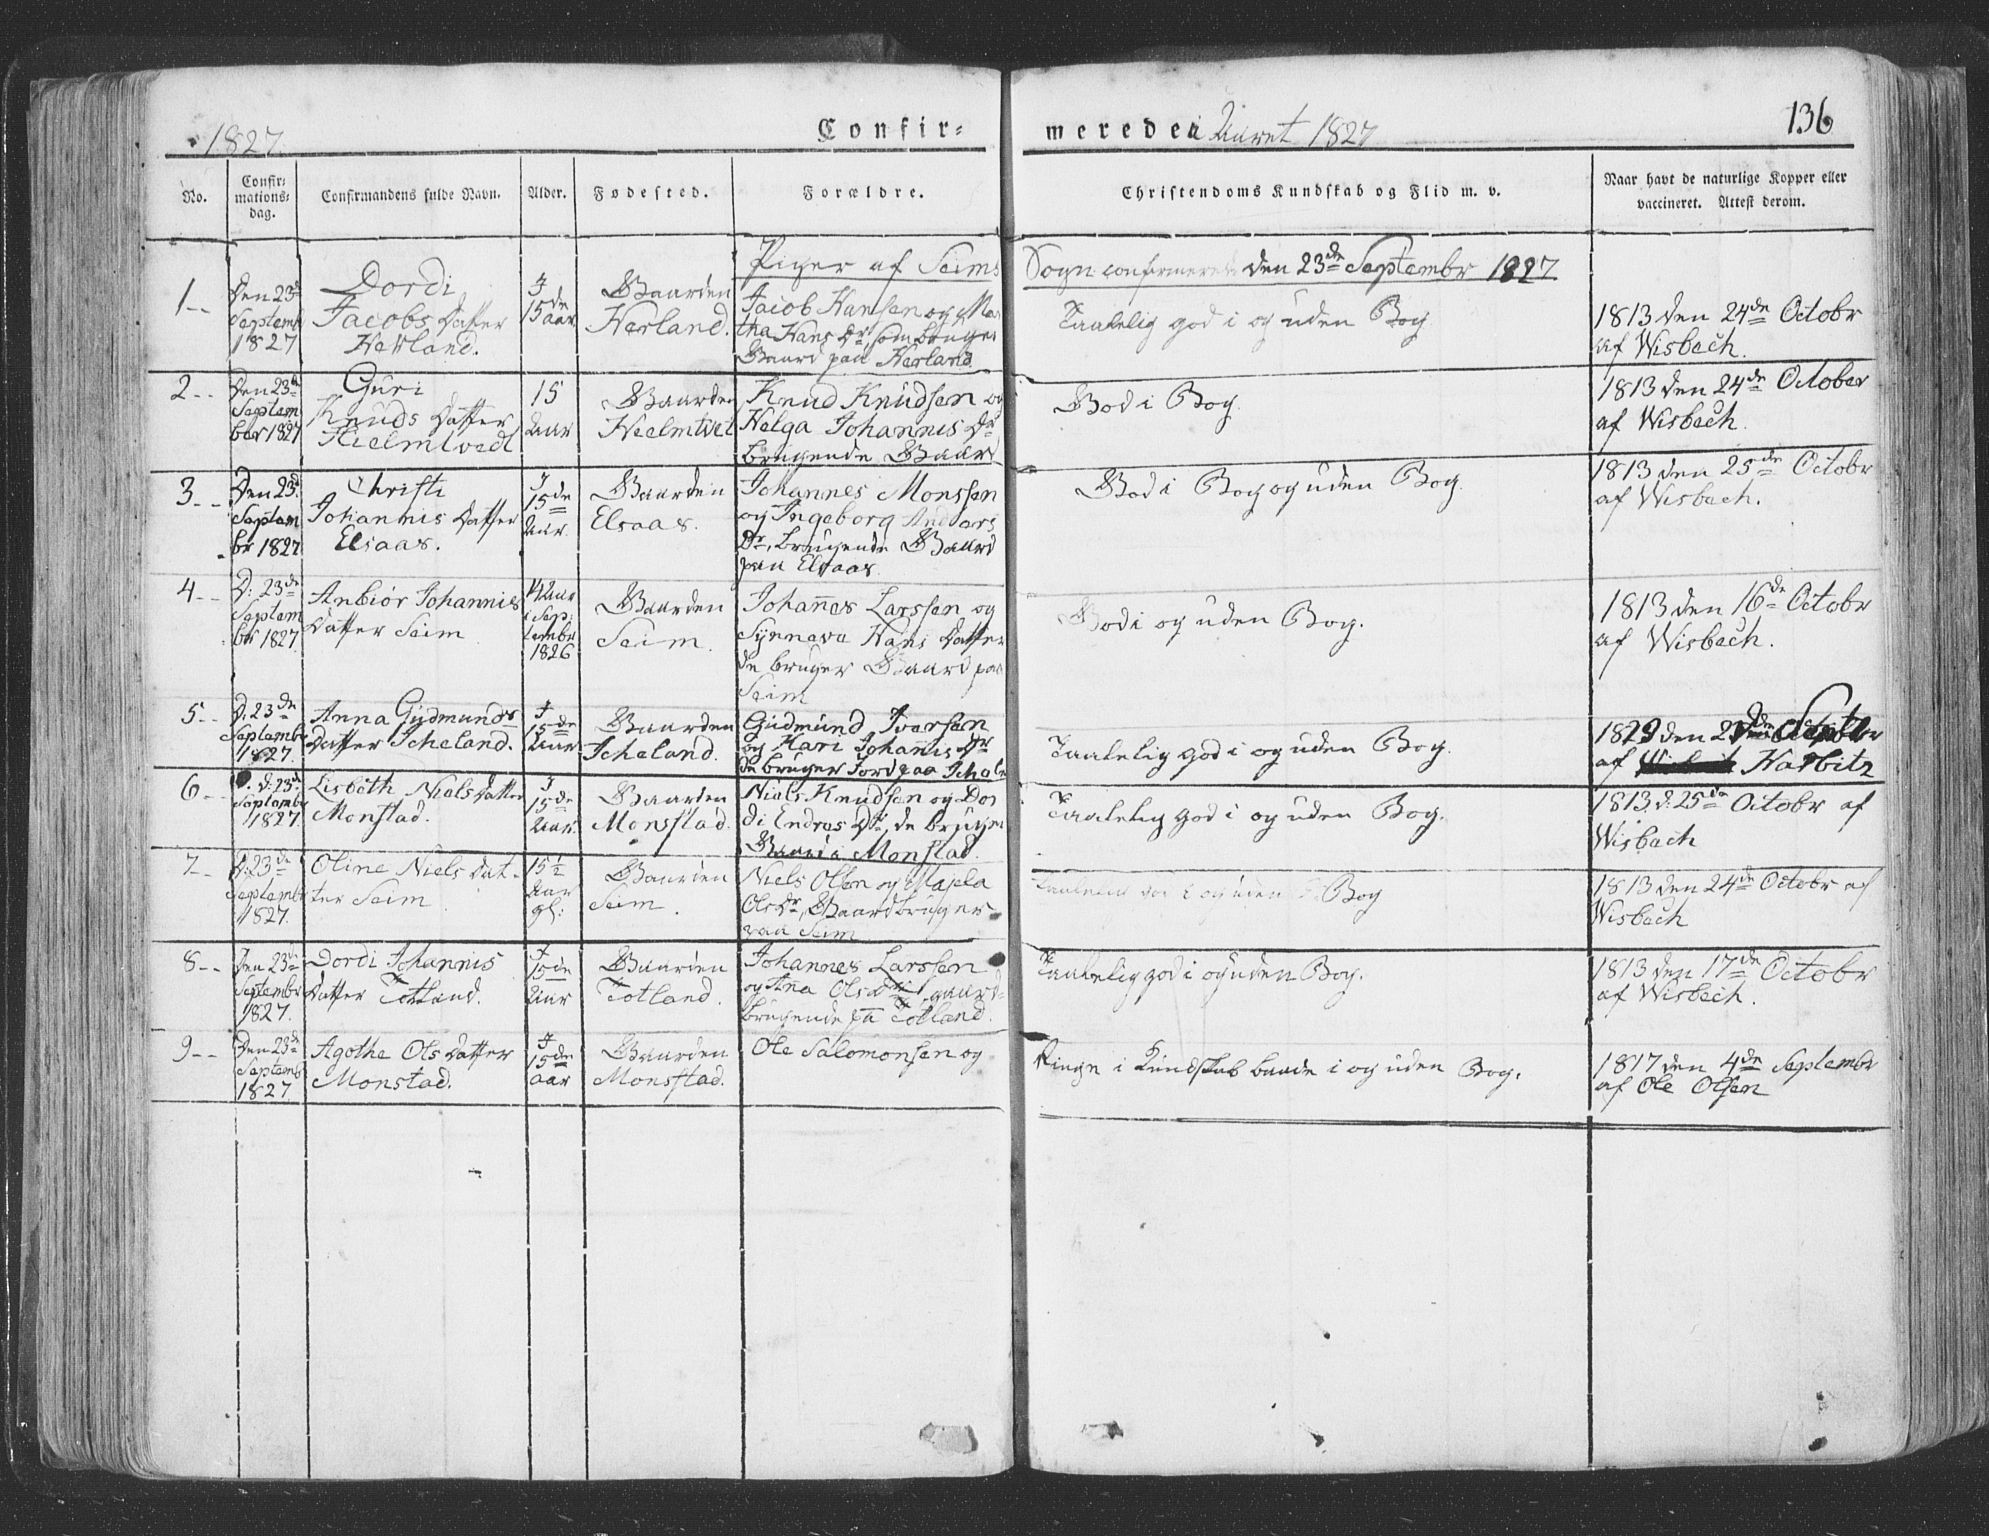 1827. Confir= merede i Aaret 1827 136
No. Confir=mations=dag. Confirmandens fulde Navn. Alder. Fødested. Forældre. Christendoms Kundskab og Flid m. v. Naar havt de naturlige Kopper eller vaccineret. Attest derom.
Piger af Seims Sogn confirmerede den 23de Septembr 1827
1 -- Den 23de Septemb 1827
Dordi Jacobs Datter Herland.
I 15de aar
Gaarden Herland.
Jacob Hansen og Mar
tha Hans Dr, som bruger
Gaard paa Herland
Taalelig god i og uden Bog
1813 den 24de Octobr
af Wisbech.
2 -- Den 23de Septem ber 1827
Guri Knuds Datter Hielmtvedt
15 Aar
Gaarden Heelmtvet
Knud Knudsen og
Helga Johannis Dr
brugende Gaard
God i Bog.
1813 den 24de October
af Wisbech.
3 -- Den 23d Septem br 1827
Christi Johannis Datter Elsaas.
I 15de Aar
Gaarden Elsaas.
Johannes Monssen
og Ingeborg Anders
Dr, brugende Gaard
paa Elsaas.
God i Bog og uden Bog.
1813 den 25de Octobr
af Wisbech.
4 -- D: 23de Septem ber 1827.
Anbiør Johannis Datter Seim
14 Aar i Sep: tembr 1826
Gaarden Seim.
Johañes Larssen og
Synneva Hans Datter
de bruger Gaard paa
Seim
God i og uden Bog.
1813 den 16de Octobr
af Wisbech.
5 -- D. 23de Septembr 1827.
Anna Gudmunds Datter Icheland.
I 15de Aar
Gaarden Icheland.
Gudmund Iversen
og Kari Johanis Dr
de bruger Jord paa Ichele
Taalelig god i og uden Bog.
1823 den Septbr
af Harbitz
6 -- d: 23de Septembr 1827.
Lisbeth Niels Datter Monstad.
I 15de Aar.
Gaarden Monstad.
Niels Knudsen og Dor
di Endres Dr, de bruger
Gaard i Monstad.
Taalelig god i og uden Bog.
1813. d. 25de Octobr af
Wisbech
7 -- D: 23de Septembr 1827.
Oline Niels Dat-ter Seim
15½ Aar gl:
Gaarden Seim.
Niels Olsen og Magla
Ols Dr, Gaardbruger
paa Seim
Taalelig god i og uden Bog
1813 den 24de Octobr af
Wisbech
8 -- Den 23de Septembr 1827.
Dordi Johannis Datter Totland.
I 15de Aar
Gaarden Totland.
Johannes Larssen
og Aña Ols Dtr, gaard=
brugende pa Totland.
Taalelig god i og uden Bog.
1813 den 17de Octobr
af Wisbech.
9 -- Den 23de Septemb 1827
Agothe Ols Datter Monstad.
I 15de aar
Gaarden Monstad.
Ole Salomonsen og
Ringe i Kundskab baade i og uden Bog.
1817 den 4de Septembr
af Ole Olsen